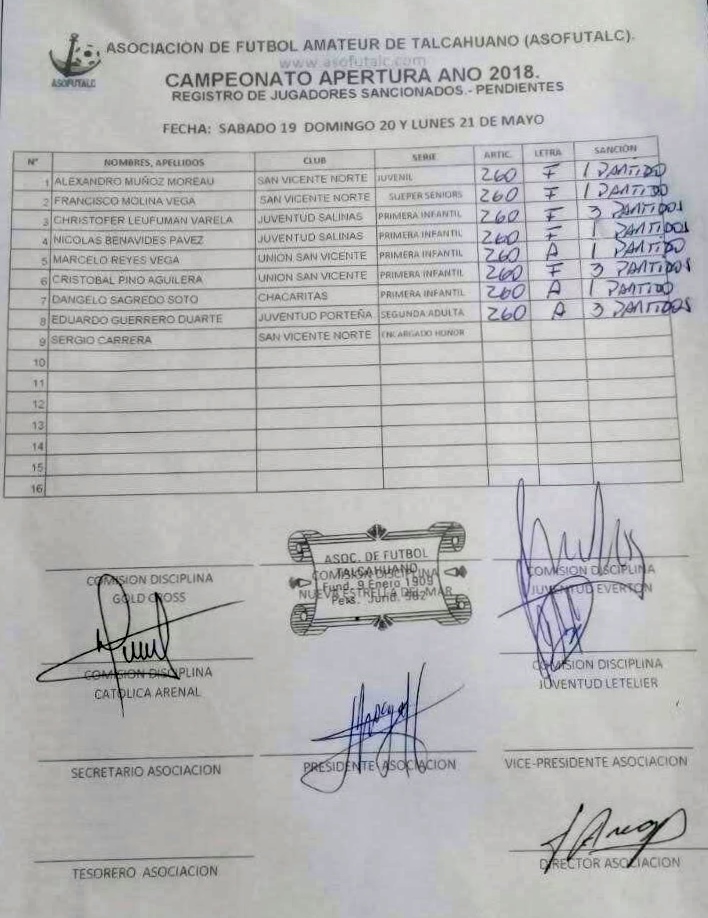 ASOCIACIÓN DE FUTBOL AMATEUR DE TALCAHUANO (ASOFUTALC).
www.asofutalc.com
ASOFUTALC
CAMPEONATO APERTURA ANO 2018.
REGISTRO DE JUGADORES SANCIONADOS.- PENDIENTES
FECHA: SABADO 19 DOMINGO 20 Y LUNES 21 DE MAYO
N° NOMBRES, APELLIDOS CLUB SERIE ARTIC. LETRA SANCIÓN
1 ALEXANDRO MUÑOZ MOREAU SAN VICENTE NORTE JUVENIL 260 F 1 PARTIDO
2 FRANCISCO MOLINA VEGA SAN VICENTE NORTE SUEPER SENIORS 260 F 1 PARTIDO
3 CHRISTOFER LEUFUMAN VARELA JUVENTUD SALINAS PRIMERA INFANTIL 260 F 3 PARTIDOS
4 NICOLAS BENAVIDES PAVEZ JUVENTUD SALINAS PRIMERA INFANTIL 260 F 1 PARTIDOS
5 MARCELO REYES VEGA UNION SAN VICENTE PRIMERA INFANTIL 260 A 1 PARTIDO
6 CRISTOBAL PINO AGUILERA UNION SAN VICENTE PRIMERA INFANTIL 260 F 3 PARTIDOS
7 DANGELO SAGREDO SOTO CHACARITAS PRIMERA INFANTIL 260 A 1 PARTIDO
8 EDUARDO GUERRERO DUARTE JUVENTUD PORTEÑA SEGUNDA ADULTA 260 A 3 PARTIDOS
9 SERGIO CARRERA SAN VICENTE NORTE ENCARGADO HONOR
10
11
12
13
14
15
16
ASOC. DE FUTBOL
TALCAHUANO
Fund. 9 Enero 1909
Pers. Jurid. 982
COMISION DISCIPLINA COMISION DISCIPLINA COMISION DISCIPLINA
GOLD CROSS NUEVA ESTRELLA DEL MAR JUVENTUD EVERTON
COMISION DISCIPLINA COMISION DISCIPLINA
CATOLICA ARENAL JUVENTUD LETELIER
SECRETARIO ASOCIACION PRESIDENTE ASOCIACION VICE-PRESIDENTE ASOCIACION
TESORERO ASOCIACION DIRECTOR ASOCIACION